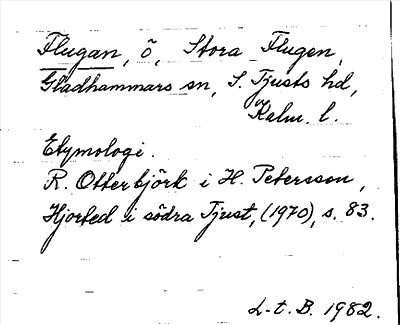 Flugan, ö, Stora Flugen,
Gladhammars sn, S. Tjusts hd,
Kalm. l.
Etymologi.
R. Otterbjörk i H. Petersson,
Hjorted i södra Tjust, (1970), s. 83.
L-t. B. 1982.